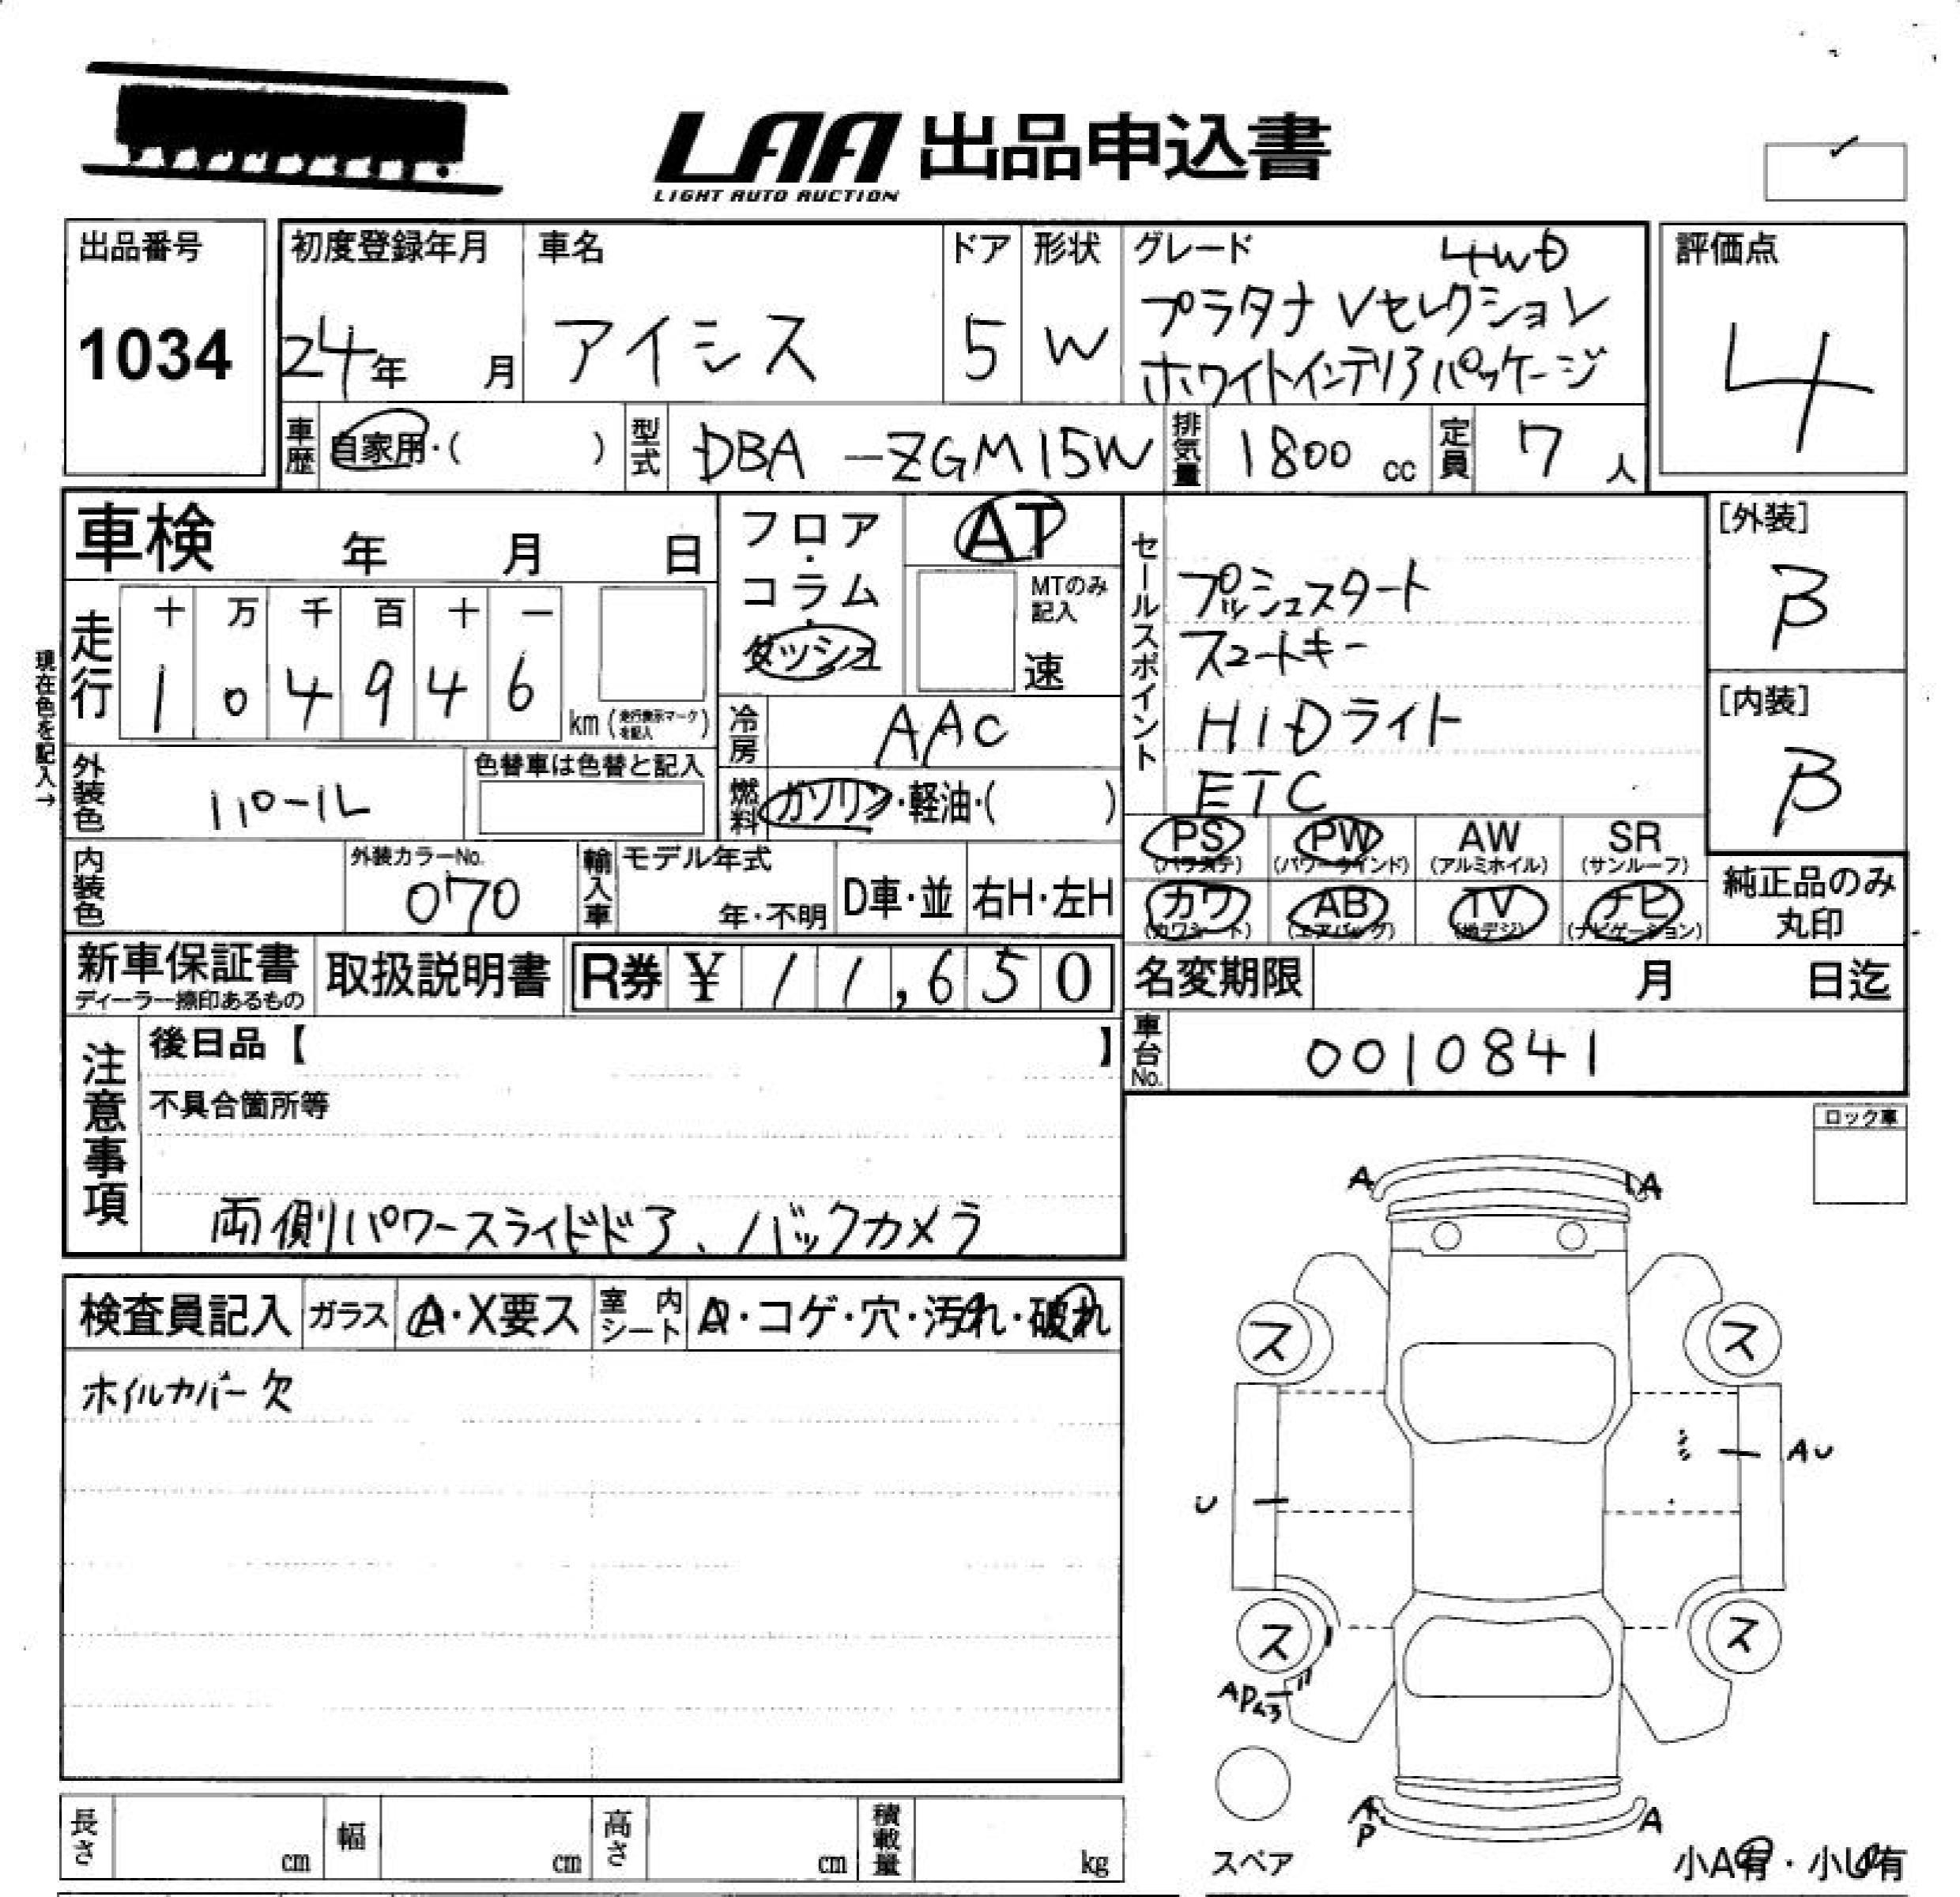 LAA 出品申込書
LIGHT AUTO AUCTION
出品番号
1034
初度登録年月
24年 月
車名
アイシス
ドア
5
形状
W
グレード
4WD
プラタナ Vセレクション
ホワイトインテリアパッケージ
評価点
4
車歴 自家用・( )
型式 DBA-ZGM15W
排気量 1800 cc
定員 7 人
車検 年 月 日
フロア・コラム・ダッシュ
AT
MTのみ記入
速
現在色を記入→
走行
十 万 千 百 十 一
1 0 4 9 4 6
km (走行表示マークを記入)
冷房 AAC
燃料 ガソリン・軽油・( )
外装色 パール
色替車は色替と記入
内装色
外装カラーNo.
070
輸入車
モデル年式
年・不明
D車・並
右H・左H
セールスポイント
プッシュスタート
スマートキー
HIDライト
ETC
[外装]
B
[内装]
B
PS (パワステ)
PW (パワーウインド)
AW (アルミホイル)
SR (サンルーフ)
カワ (カワシート)
AB (エアバッグ)
TV (地デジ)
ナビ (ナビゲーション)
純正品のみ
丸印
新車保証書
ディーラー捺印あるもの
取扱説明書
R券 ¥ 11,650
名変期限 月 日迄
車台No. 0010841
注意事項
後日品【 】
不具合箇所等
両側パワースライドドア、バックカメラ
ロック車
検査員記入
ガラス A・X要ス
室内シート A・コゲ・穴・汚れ・破れ
ホイルカバー欠
A
A
ス
ス
AU
U
ス
ス
A
P
A
スペア
小A有・小U有
長さ cm
幅 cm
高さ cm
積載量 kg